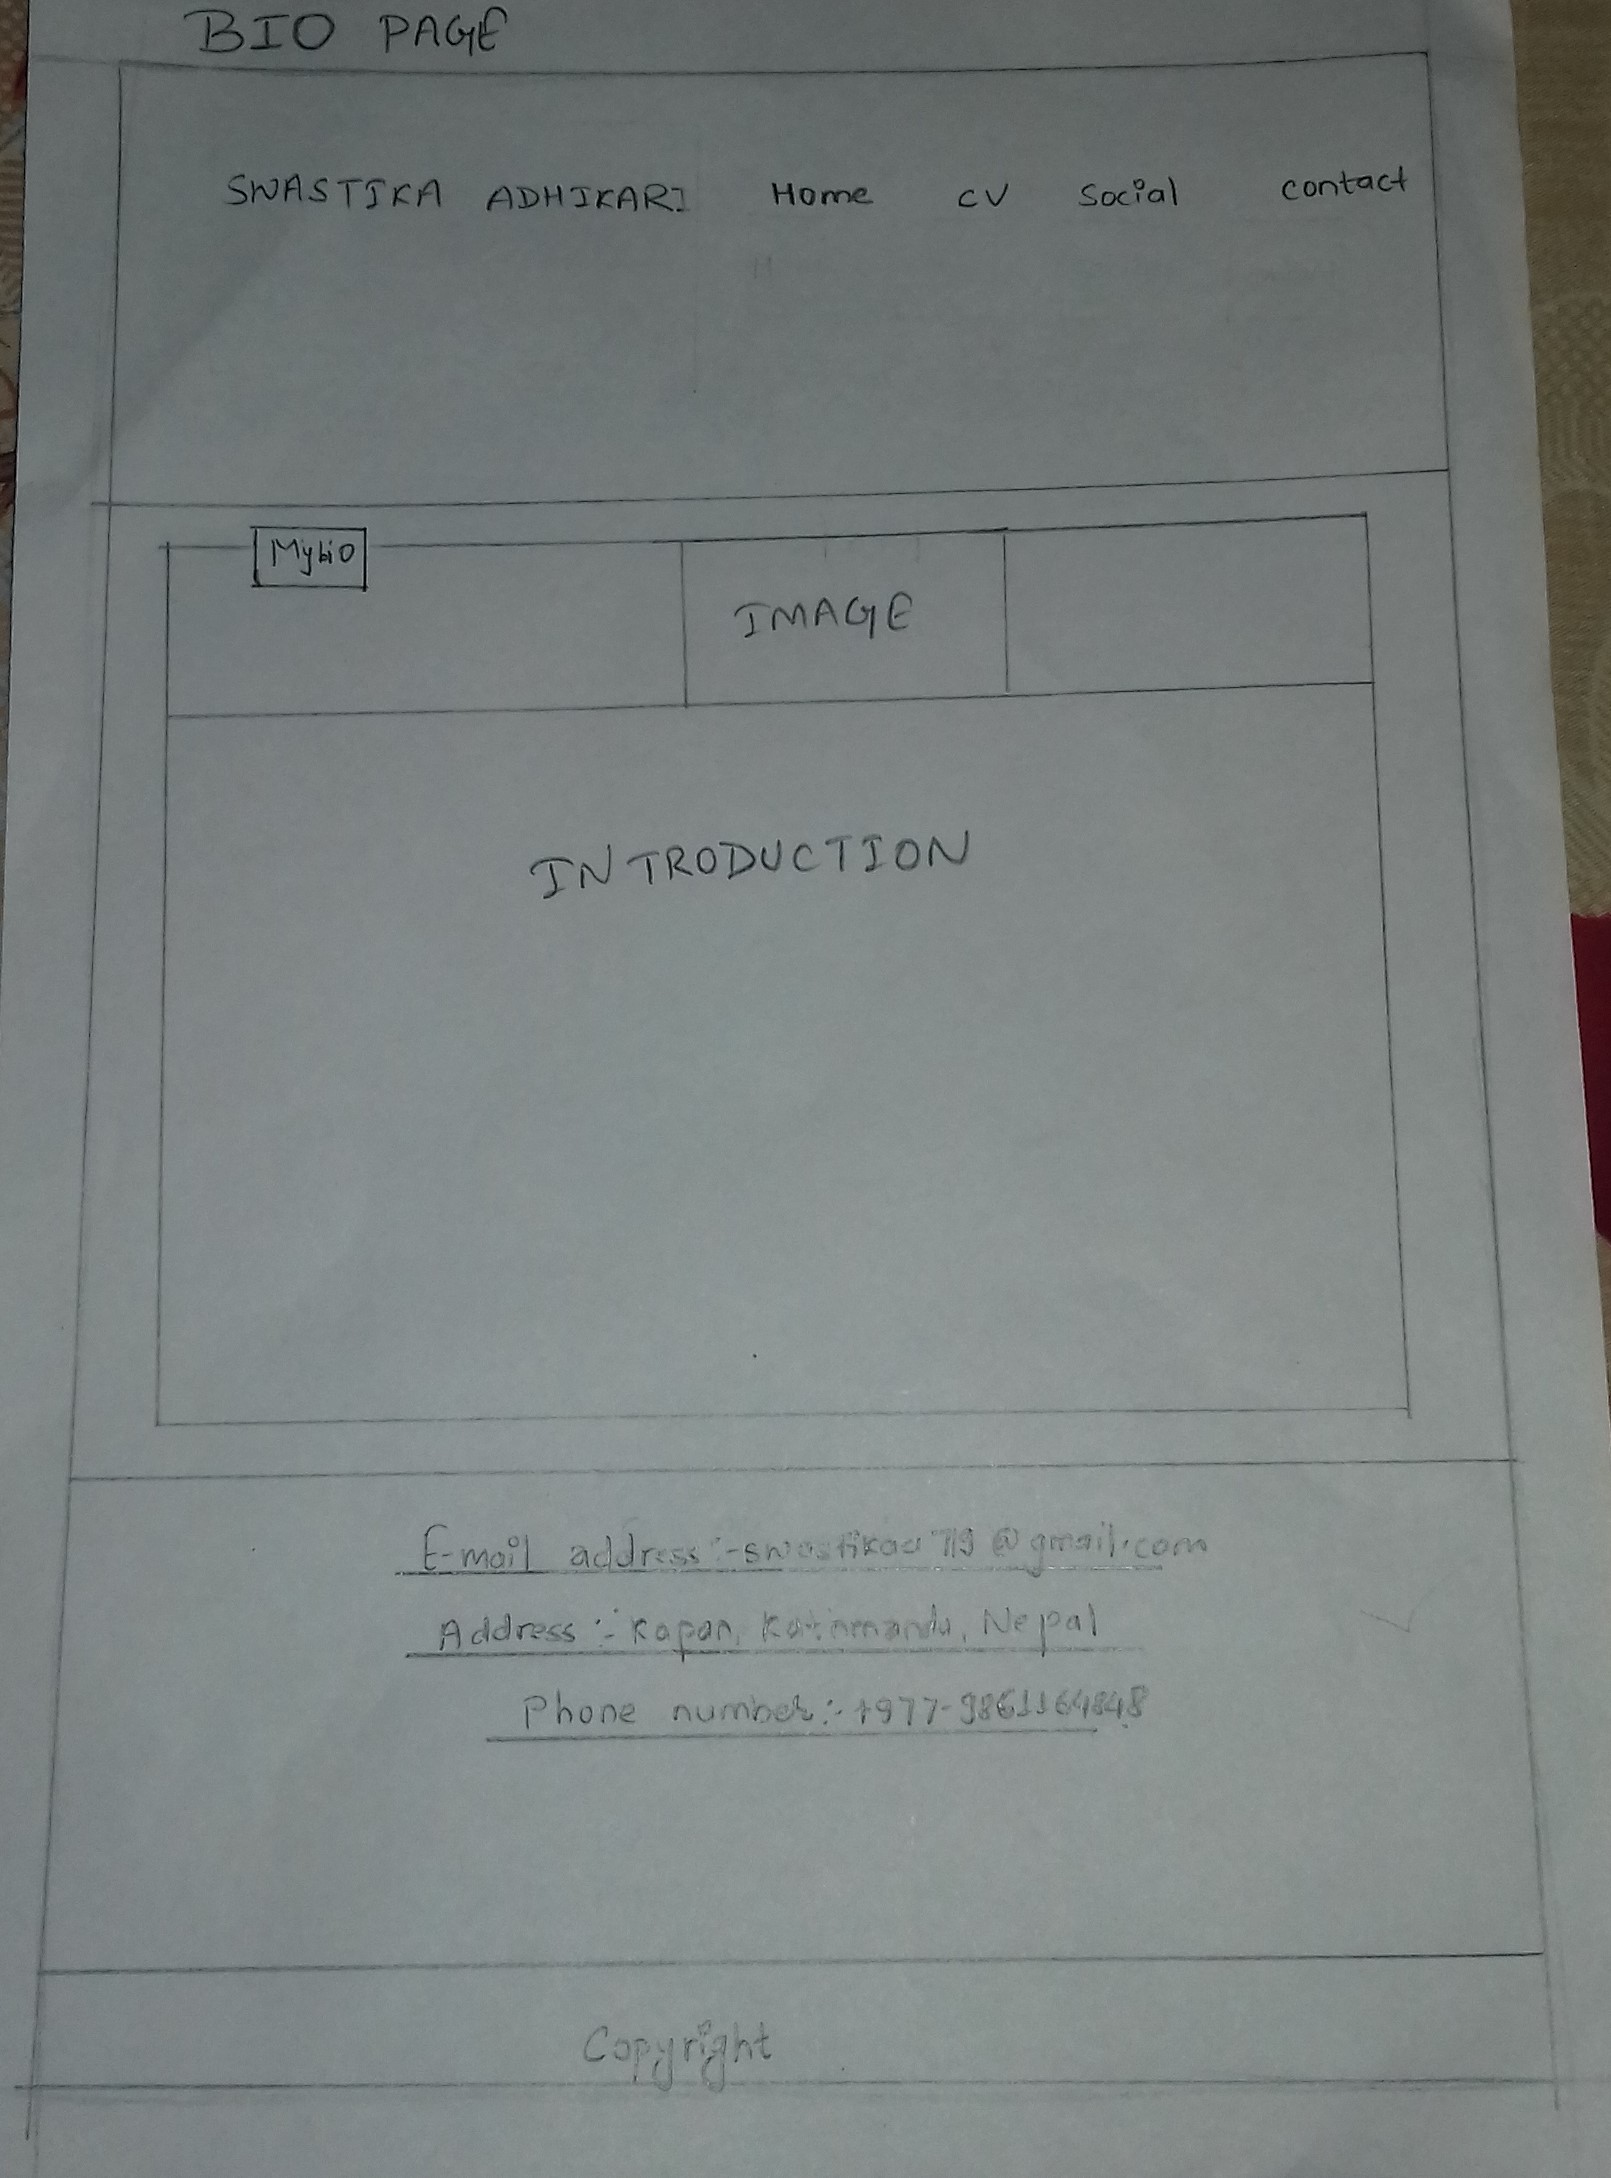 BIO PAGE
SWASTIKA ADHIKARI Home CV Social contact
My bio
IMAGE
INTRODUCTION
E-mail address:-swastikaa719@gmail.com
Address:- Kapan, Kathmandu, Nepal
Phone number:- +977-9861164848
Copyright